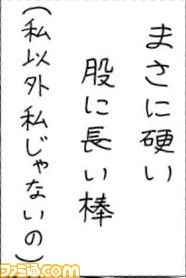 まさに硬い
股に長い棒
（私以外私じゃないの）
ファミ通.com